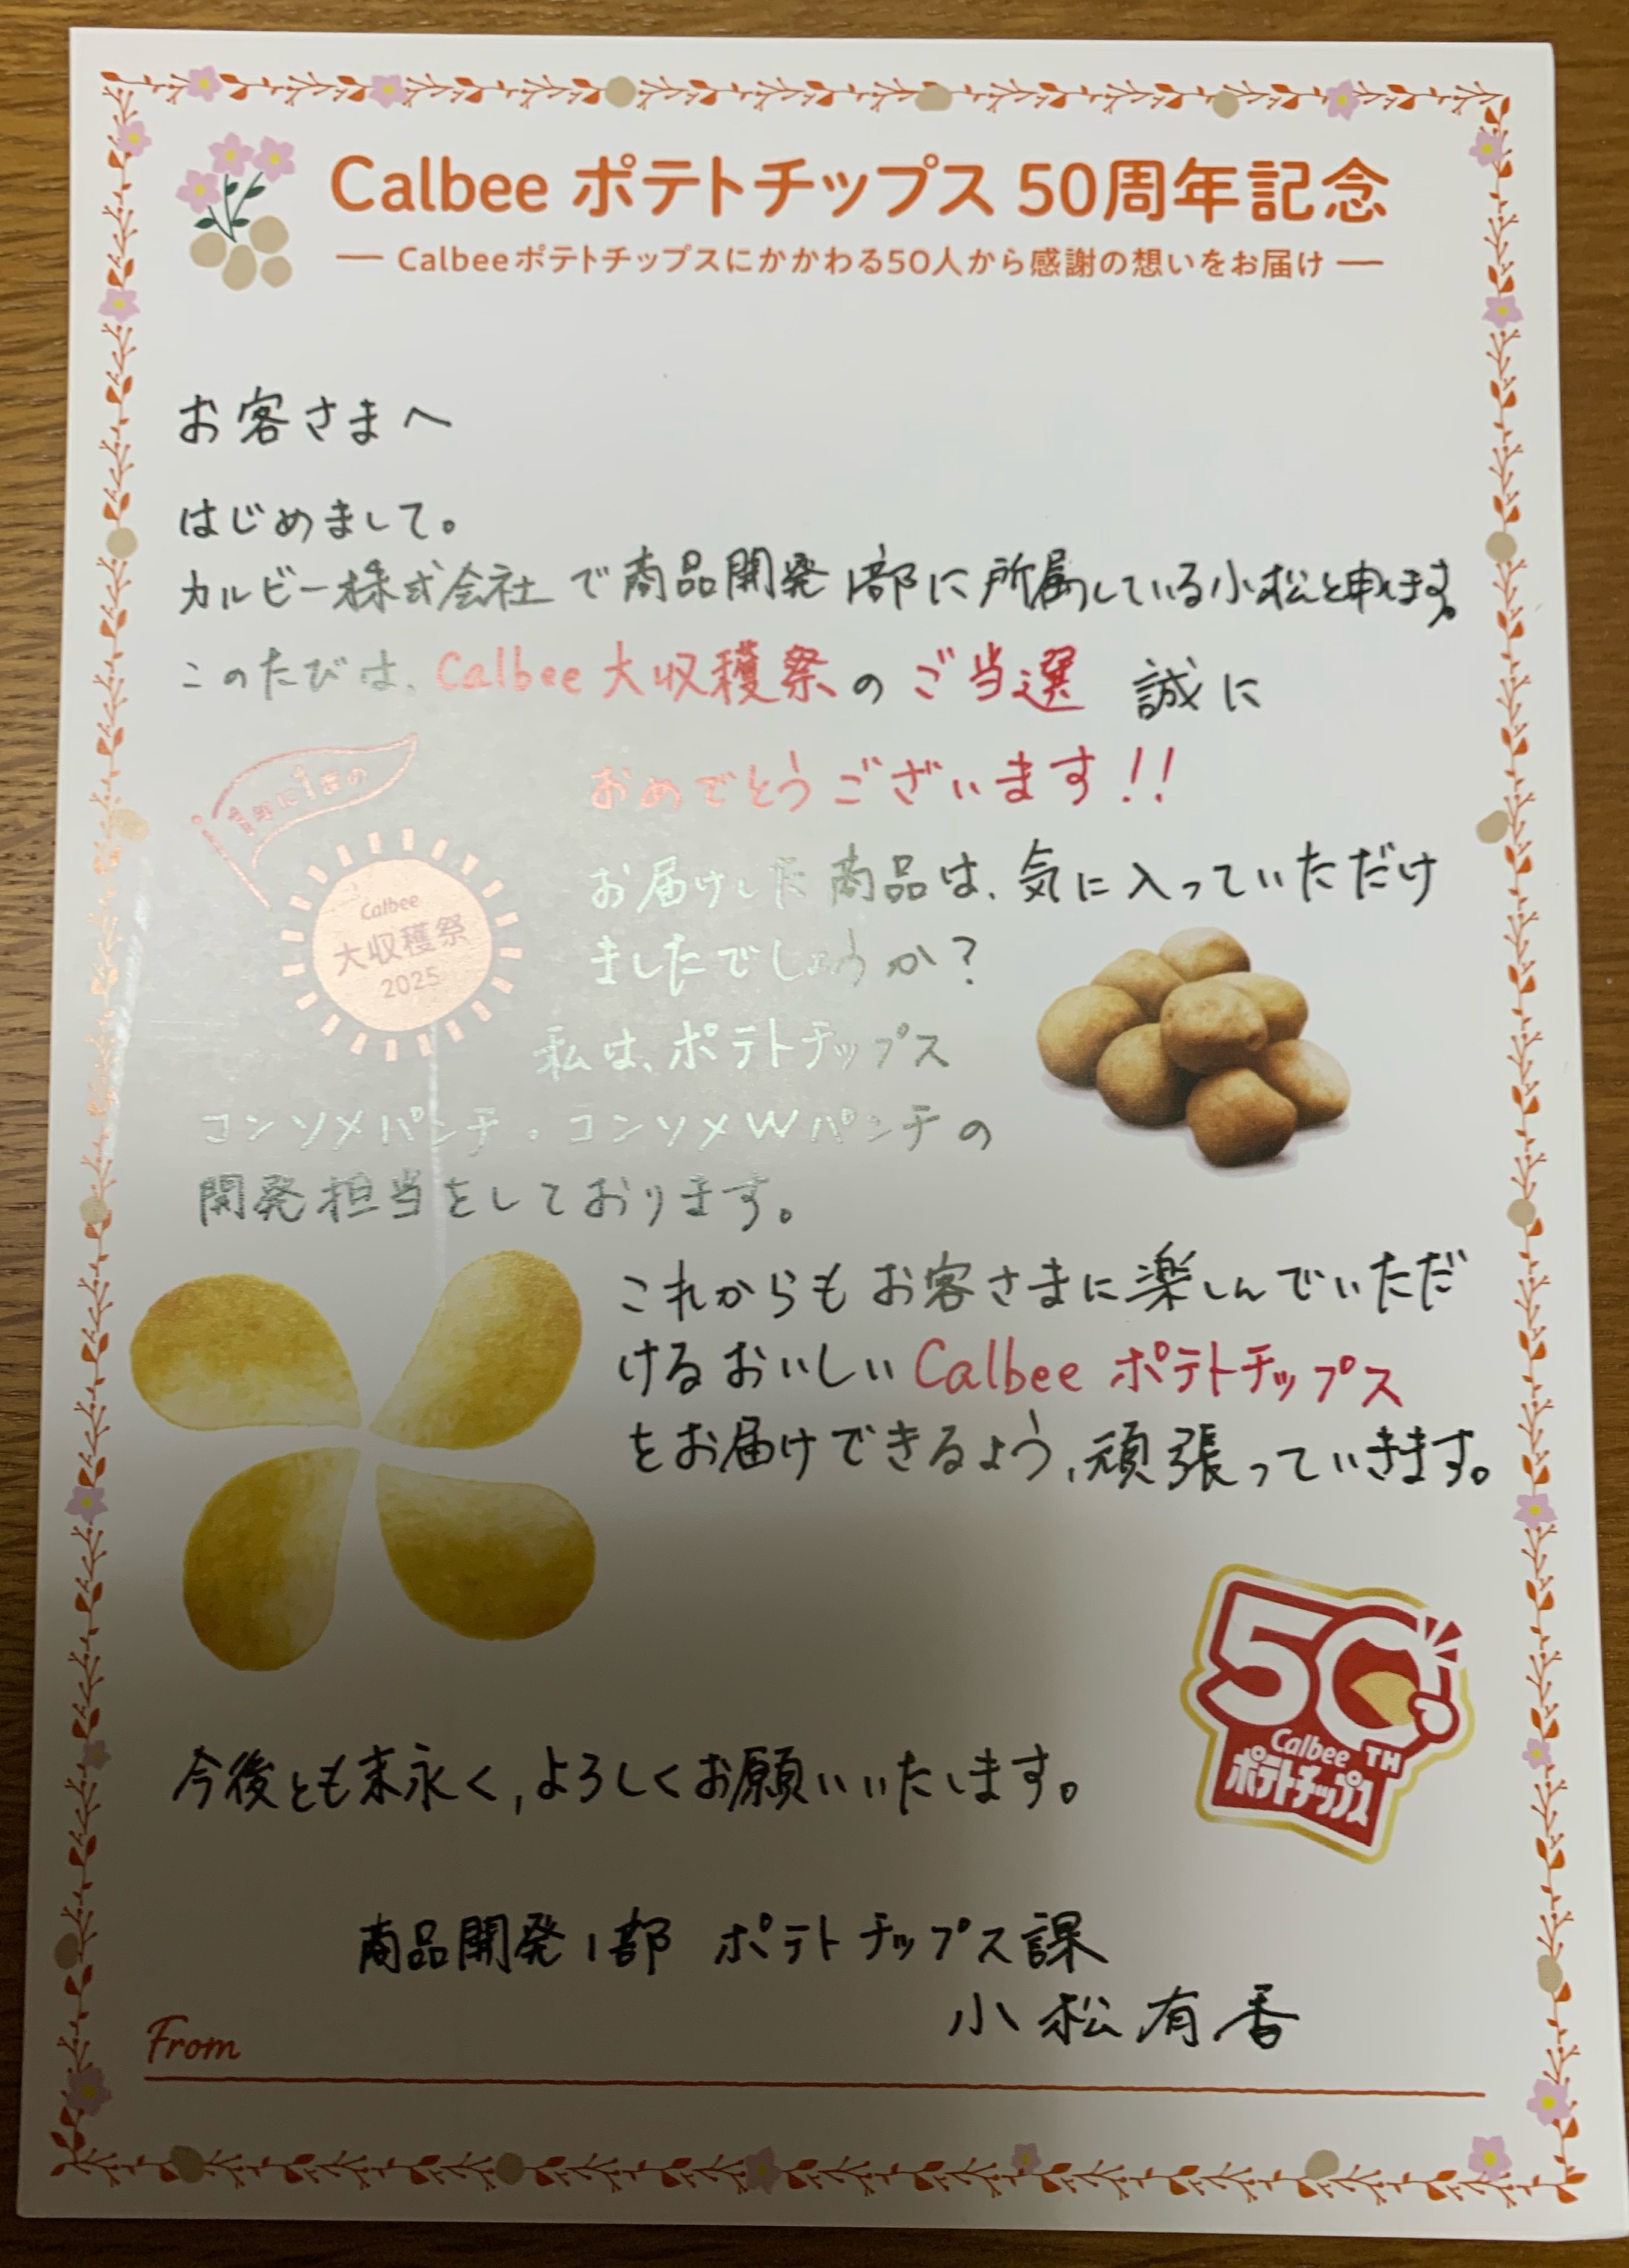 Calbee ポテトチップス 50周年記念
― Calbeeポテトチップスにかかわる50人から感謝の想いをお届け ―
お客さまへ
はじめまして。
カルビー株式会社で商品開発1部に所属している小松と申します。
このたびは、Calbee大収穫祭のご当選 誠に
おめでとうございます!!
1年に1度の
Calbee
大収穫祭
2025
お届けした商品は、気に入っていただけ
ましたでしょうか?
私は、ポテトチップス
コンソメパンチ・コンソメWパンチの
開発担当をしております。
これからもお客さまに楽しんでいただ
けるおいしいCalbeeポテトチップス
をお届けできるよう、頑張っていきます。
50TH
Calbee
ポテトチップス
今後とも末永く、よろしくお願いいたします。
商品開発1部 ポテトチップス課
小松有香
From